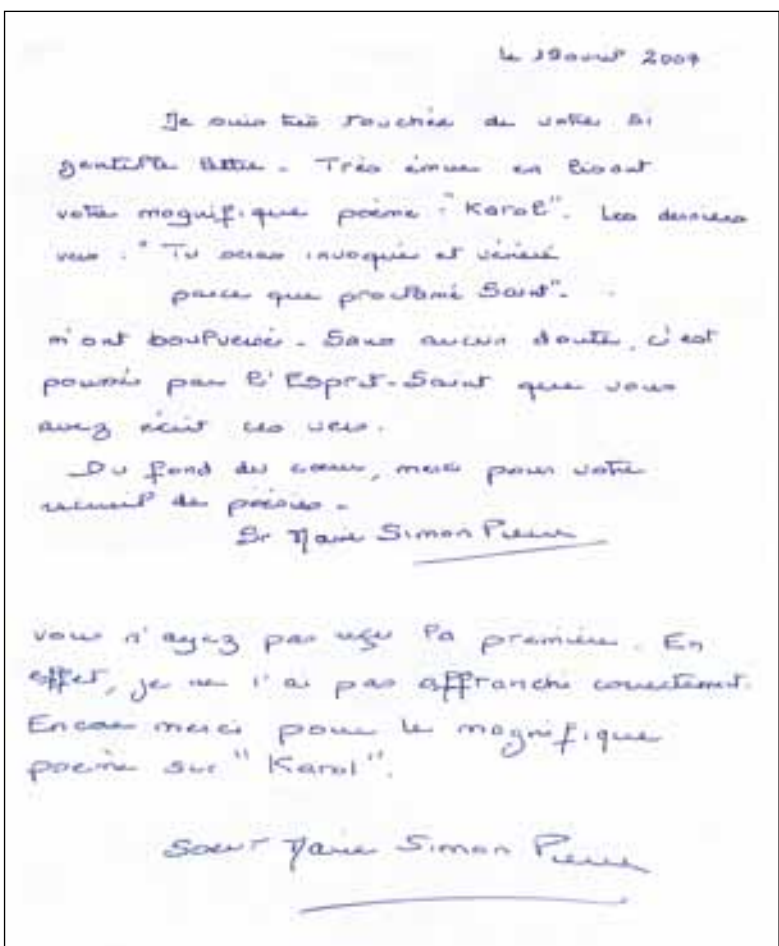 le 19 avril 2007
Je suis très touchée de votre si
gentille lettre. Très émue en lisant
votre magnifique poème "Karol". Les derniers
vers : "Tu seras invoqué et vénéré
parce que proclamé Saint".
m'ont boulversée. Sans aucun doute, c'est
poussée par l'Esprit-Saint que vous
avez écrit ces vers.
Du fond du cœur, merci pour votre
recueil de poésies.
Sr Marie Simon Pierre
vous n'ayez pas reçu la première. En
effet, je ne l'ai pas affranchi correctement.
Encore merci pour le magnifique
poème sur "Karol".
Soeur Marie Simon Pierre